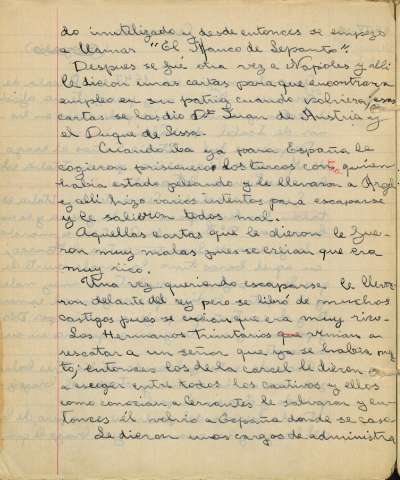 do inutilizado y desde entonces se empezó
a llamar "El Manco de Lepanto".
Despues se fué otra vez a Napoles y alli
le dieron unas cartas para que encontrara
empleo en su patria cuando volviera, esas
cartas se las dio Dn Juan de Austria y
el Duque de Sessa.
Cuando iba ya para España le
cogieron prisionero los turcos contra quien
habia estado peleando y le llevaron a Argel
y alli hizo varios intentos para escaparse
y le salieron todos mal.
Aquellas cartas que le dieron le fue-
ron muy malas pues se creian que era
muy rico.
Una vez queriendo escaparse le lleva-
ron delante del rey pero se libró de muchos
castigos pues se creian que era muy rico.
Los Hermanos Trinitarios que venian a
rescatar a un señor que ya se habia
entonces los de la carcel le dieron
a escoger entre todos los cautivos y ellos
como conocian a Cervantes le salvaron y en-
tonces él volvió a España donde se caso
Le dieron unos cargos de administra